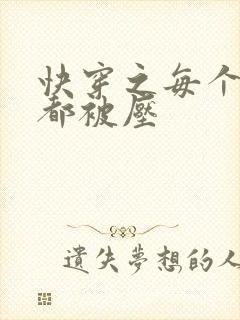 快穿之每个
都被壓
遺失夢想的人